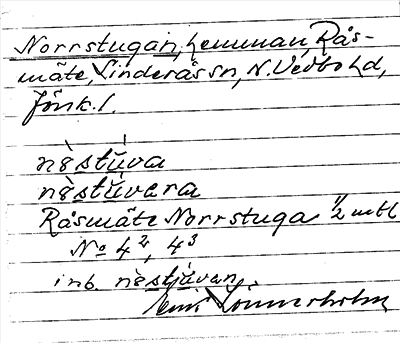 Norrstugan, hemman, Rås-
mäte, Linderås sn, N. Vedbo hd,
Jönk. l.
nèstúva
nèstùvara
Råsmäte Norrstuga 1/2 mtl
No 4², 4³
inb. nèstùvan
Lönnerholm